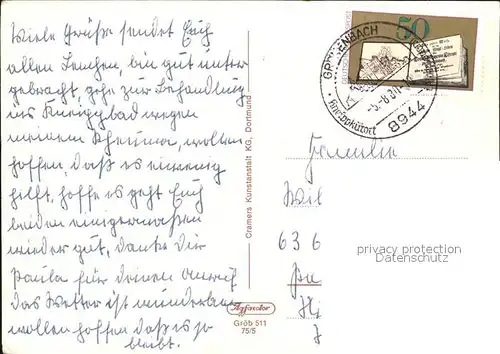 Viele Grüße sendet Euch
allen Lenchen, bin gut unter
gebracht, gehe zur Behandlung
ins Kneippbad wegen
meinem Rheuma, wollen
hoffen, daß es ein wenig
hilft, hoffe es geht Euch
beiden einigermaßen
wieder gut, danke Dir
Paula für deinen Anruf
das Wetter ist wunderbar
wollen hoffen daß es so
bleibt.
Cramers Kunstanstalt KG, Dortmund
Gröb 511
75/5
50
GRÖNENBACH
Kneippkurort
8944
Familie
Wil
636
privacy protection